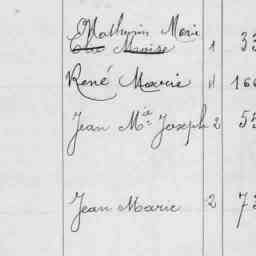 Mathurin Marie
Marise 1 33
René Marie 11 166
Jean M^ie Joseph 2 55
Jean Marie 2 73